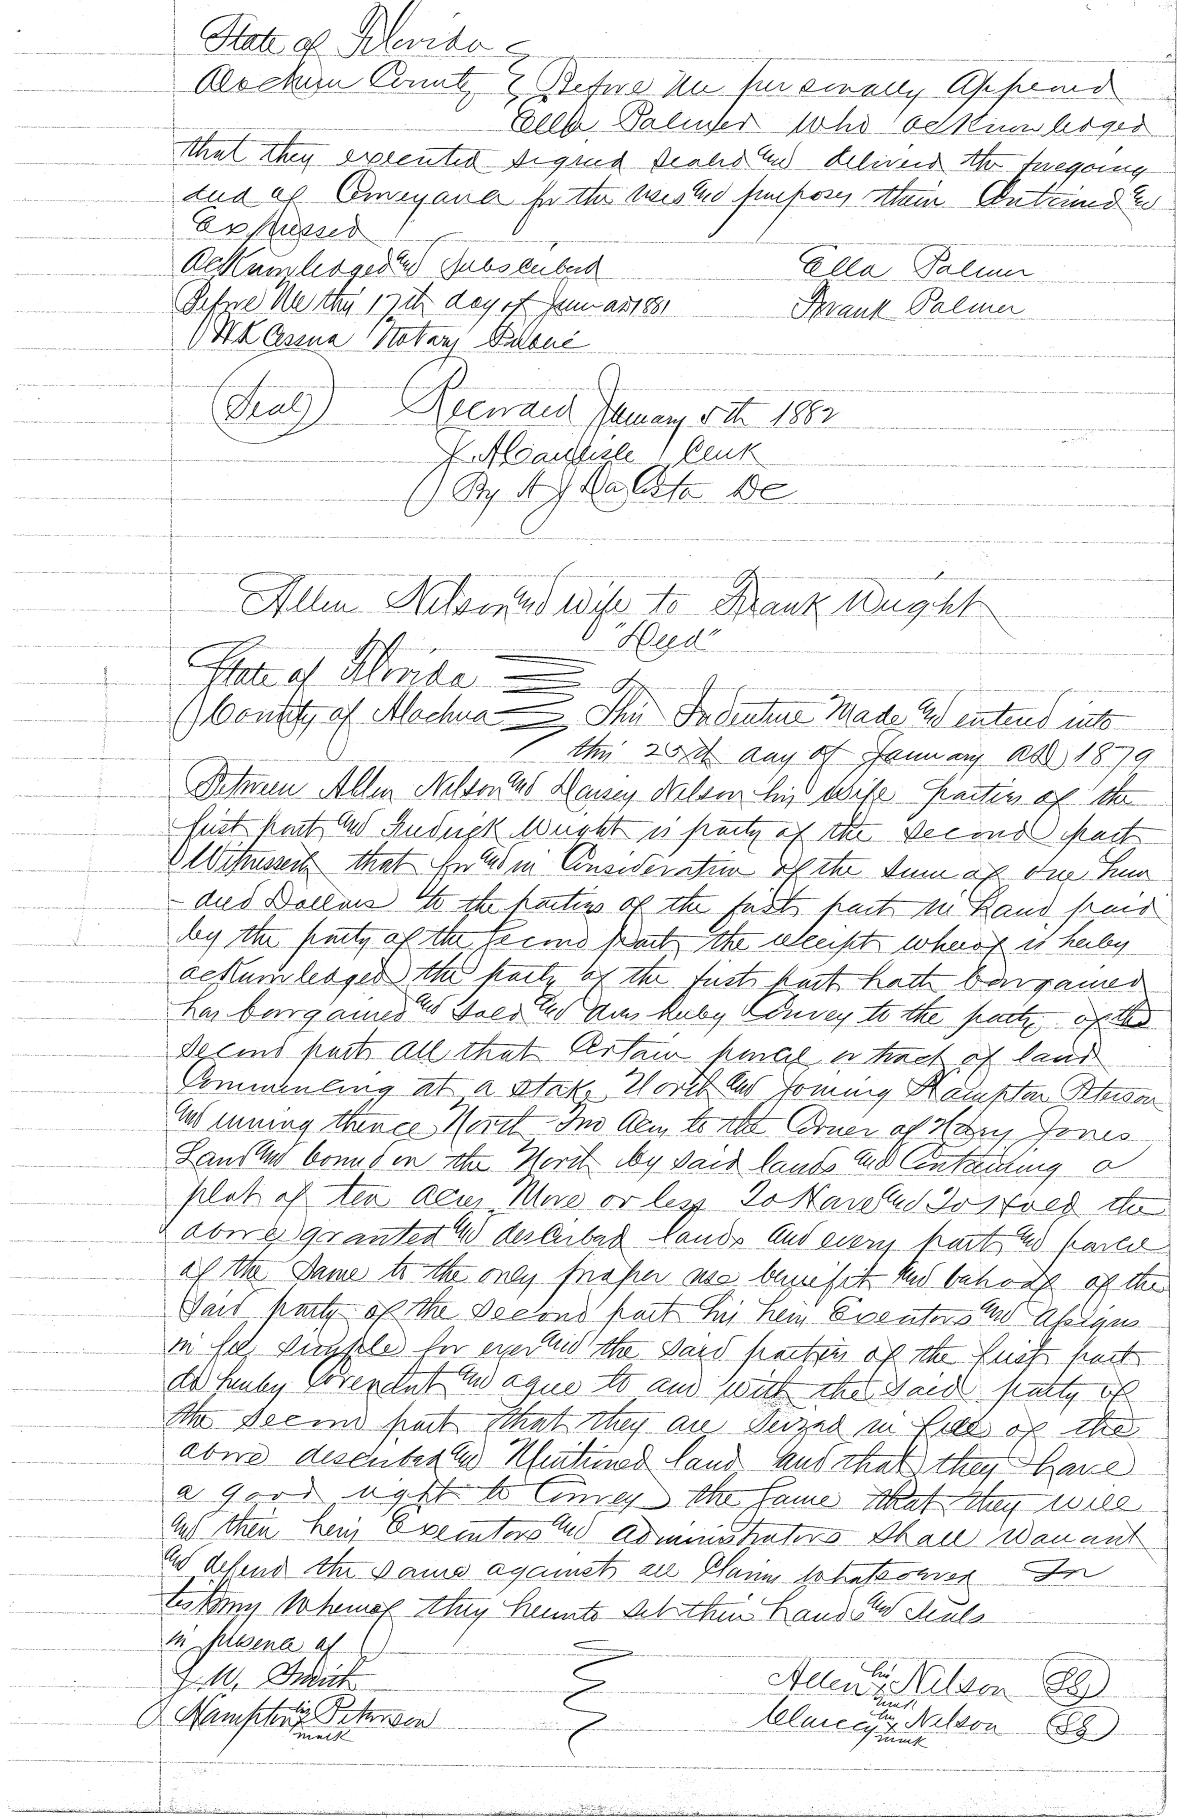 State of Florida
Alachua County Before Me personally Appeared
Ella Palmer who acknowledged
that they executed signed sealed and delivered the foregoing
deed of Conveyance for the uses and purposes therein Contained and
Expressed
Acknowledged and Subscribed Ella Palmer
Before Me this 17th day of January 1881 Frank Palmer
W K Cessna Notary Public
(Seal) Received January 5th 1882
J. A Carlisle Clerk
By A J Da Costa DC
Allen Nelson and wife to Frank Wright
"Deed"
State of Florida
County of Alachua This Indenture Made and entered into
this day of January AD 1879
Between Allen Nelson and Nelson his wife parties of the
first part and Fredrick Wright is party of the second part
Witnesseth that for and in Consideration of the Sum of one hun
-dred Dollars to the parties of the first part in hand paid
by the party of the second part the receipt whereof is herby
acknowledged the party of the first part hath bargained
has bargained and sold and does heruby Convey to the party of the
second part all that Certain parcel or tract of land
Commencing at a stake North and joining Hampton Peterson
and running thence North acres to the Corner of Mary Jones
Land and bound on the North by said lands and Containing a
plot of ten acres More or less To Have and To Hold the
above granted and described lands and every part and parcel
of the Same to the only proper use benefit and behoof of the
said party of the second part his heirs Executors and Assigns
in fee simple for ever and the said parties of the first part
do hereby Covendnt and agree to and with the said party of
the second part that they are Seized in fee of the
above described and Mentioned land and that they have
a good right to Convey the same that they will
and their heirs Executors and administrators shall warrant
and defend the same against all Claims whatsoever In
testimony Whereof they hereunto set their hands and Seals
in presence of
J. W. Smith Allen his x mark Nelson (SS)
Hampton his x mark Peterson Clarcey his x mark Nelson (SS)